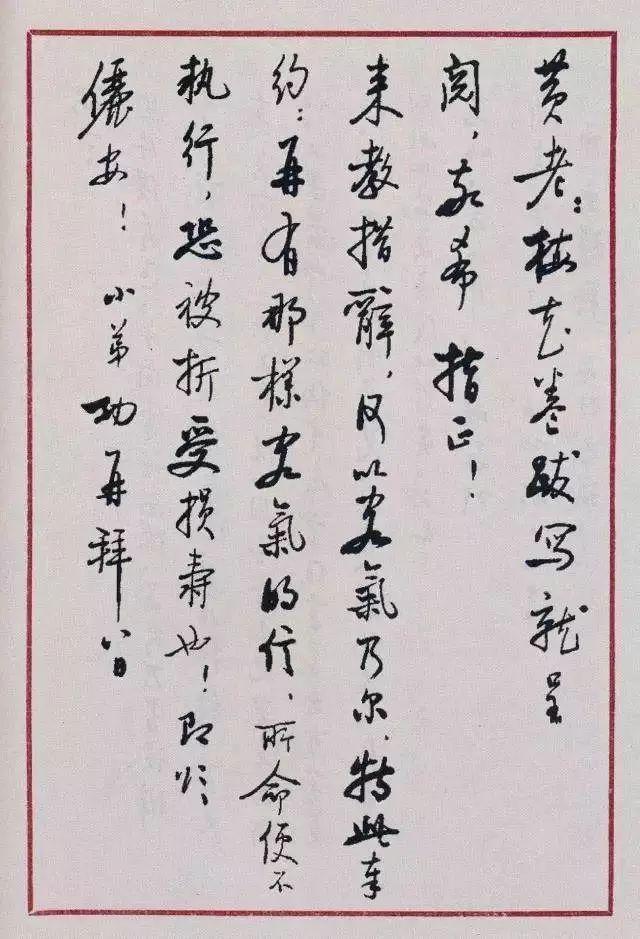 黄老：梅花卷跋写就呈
阅，敬希 指正！
来教措辭，何以客氣乃尔，特此奉
约：再有那様客氣的信，所命便不
执行，恐被折受损寿也！即颂
儷安！ 小弟功再拜 八日